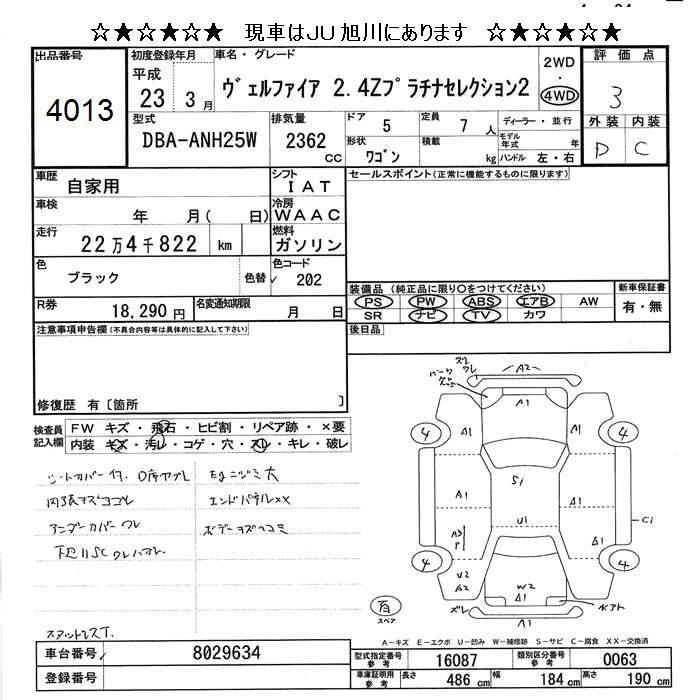 ☆★☆★☆★ 現車はJU旭川にあります ☆★☆★☆★
出品番号
4013
初度登録年月
平成
23 3月
車名・グレード
ヴェルファイア 2.4Zプラチナセレクション2
2WD
・
4WD
評価点
3
外装 内装
D C
型式
DBA-ANH25W
排気量
2362
cc
ドア
5
定員
7人
形状
ワゴン
積載
kg
ディーラー・並行
モデル年式 年
ハンドル 左・右
車歴
自家用
シフト
IAT
車検
年 月( 日)
冷房
WAAC
走行
22万4千822 km
燃料
ガソリン
色
ブラック
色替
色コード
202
R券
18,290円
名変通知期限
月 日
セールスポイント(正常に機能するものに限ります)
装備品 (純正品に限り〇をつけてください)
PS PW ABS エアB AW
SR ナビ TV カワ
新車保証書
有・無
後日品
注意事項申告欄(不具合内容等は具体的に記入して下さい)
修復歴 有〔箇所 〕
検査員
記入欄
FW キズ・飛石・ヒビ割・リペア跡・×要
内装 キズ・汚レ・コゲ・穴・スレ・キレ・破レ
シートカバー付.
Egニジミ大
エンドパネルXX
アンダーカバーワレ
ズレ
ワレ
A2
A1
4
A1
A1
4
S1
A1
A1
C1
U1
A1
4
U2
A2
W2
A1
4
有
スペア
ズレ
A1
A-キズ E-エクボ U-凹み W-補修跡 S-サビ C-腐食 XX-交換済
車台番号
8029634
登録番号
型式指定番号
参考
16087
類別区分番号
参考
0063
車庫証明用
参考
長さ
486cm
幅
184cm
高さ
190cm